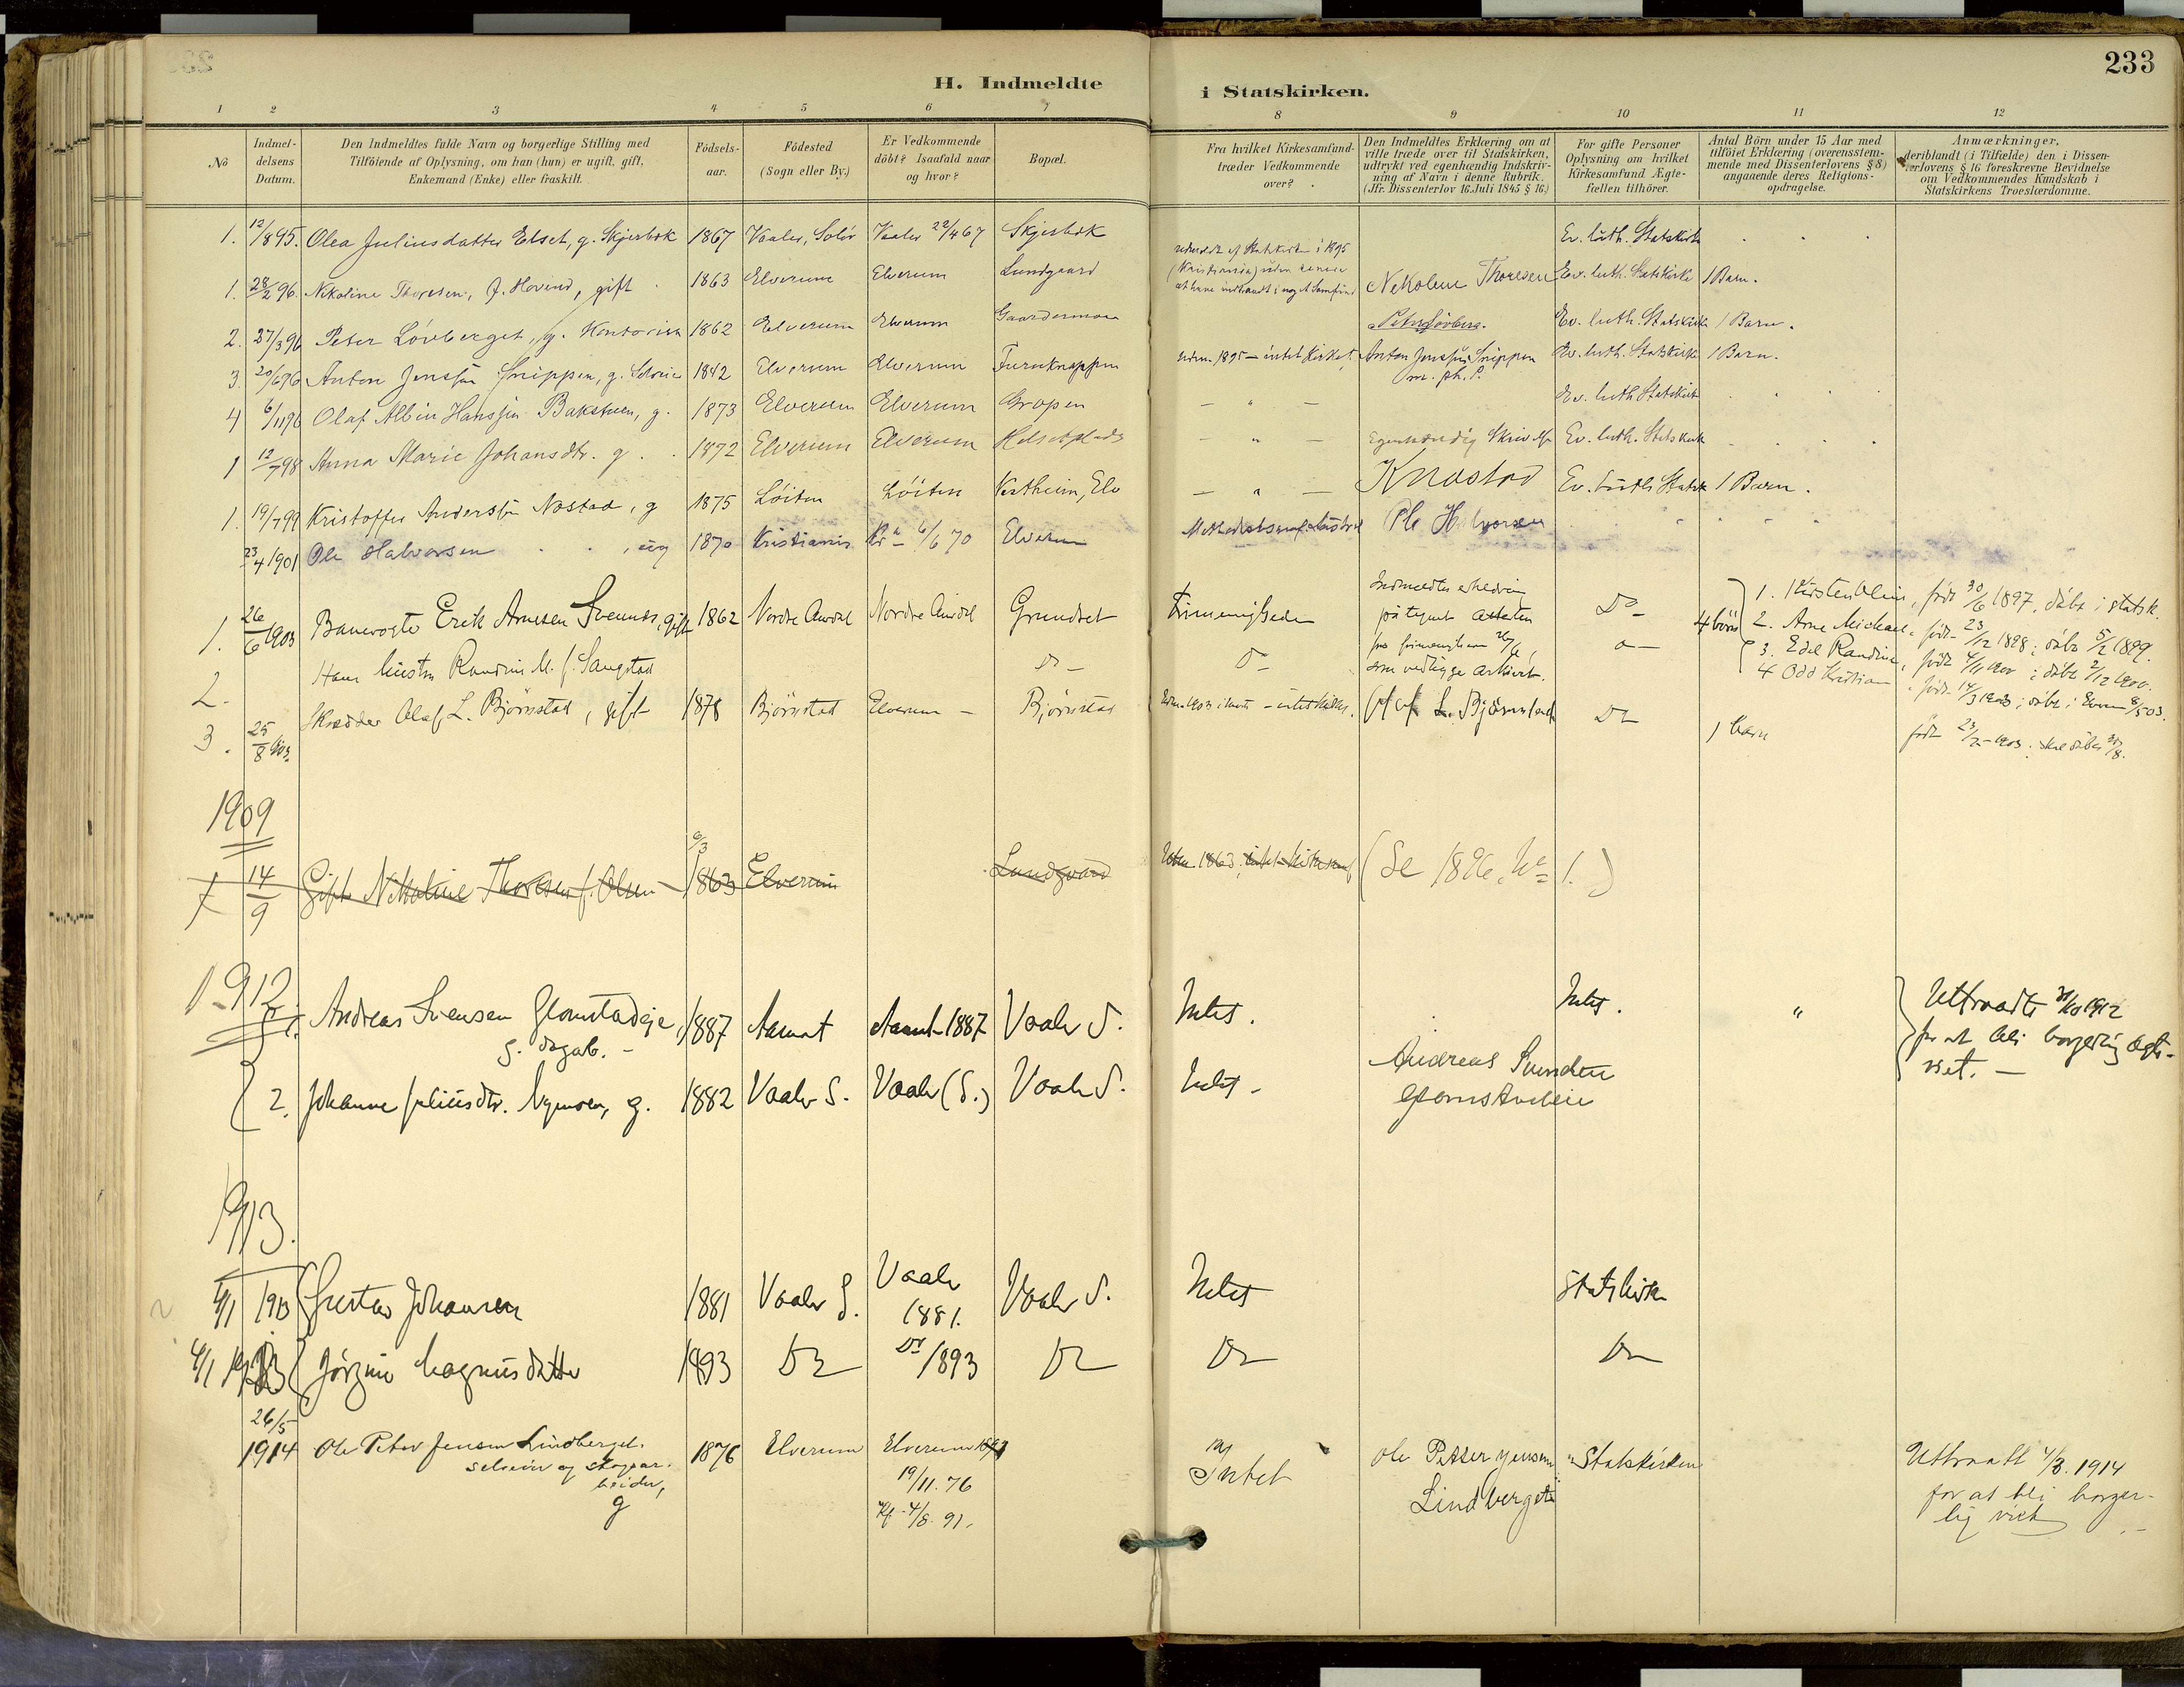 233
H. Indmeldte i Statskirken.
1 2 3 4 5 6 7 8 9 10 11 12
No
Indmeldelsens Datum.
Den Indmeldtes fulde Navn og borgerlige Stilling med
Tilföiende af Oplysning, om han (hun) er ugift, gift,
Enkemand (Enke) eller fraskilt.
Födselsaar.
Födested
(Sogn eller By.)
Er Vedkommende
döbt? Isaafald naar
og hvor?
Bopæl.
Fra hvilket Kirkesamfund
træder Vedkommende
over?
Den Indmeldtes Erklæring om at
ville træde over til Statskirken,
udtrykt ved egenhændig Indskrivning af Navn i denne Rubrik.
(Jfr. Dissenterlov 16. Juli 1845 § 16.)
For gifte Personer
Oplysning om hvilket
Kirkesamfund Ægtefællen tilhörer.
Antal Börn under 15 Aar med
tilföiet Erklæring (overensstemmende med Dissenterlovens § 8)
angaaende deres Religionsopdragelse.
Anmærkninger,
deriblandt (i Tilfælde) den i Dissenterlovens § 16 foreskrevne Bevidnelse
om Vedkommendes Kundskab i
Statskirkens Troeslærdomme.
1. 12/8 95. Olea Juliusdatter Elset, g. Skjerbæk 1867 Vaaler, Solör Vaaler 22/4 67 Skjerbæk Ev. luth. Statskirke
1. 28/2 96. Nikoline Thoresen, f. Hovind, gift 1863 Elverum Elverum Lundgaard Nekoline Thoresen Ev. luth. Statskirke 1 Barn.
2. 27/3 96 Peter Lövberget, g. Kontorist 1862 Elverum Elverum Gaardermoen Peter Lövberg. Ev. luth. Statskirke 1 Barn.
3. 20/6 96 Anton Jensen Snippen, g. 1842 Elverum Elverum Furuknappen udm. 1895 – intet Kirkes. Anton Jensen Snippen m. p. P. Ev. luth. Statskirke 1 Barn.
4 6/11 96 Olaf Albin Hanssen Bakstuen, g. 1873 Elverum Elverum Gropen – " – Ev. luth. Statskirke
1 12/7 98 Anna Marie Johansdtr. g. 1872 Elverum Elverum Helsetplads – " – Ev. luth. Statskirke
1. 19/7 99 Kristoffer Anderssen Nostad, g 1875 Löiten Löiten Vestheim, Elv – " – K Nostad Ev. luth. Statsk 1 Barn.
23/4 1901 Ole Halvorsen, ug 1870 Kristiania Kra 6/6 70 Elverum Ole Halvorsen
1. 26/6 1903 Banevogter Erik Arnesen Sveund, gift 1862 Nordre Aurdal Nordre Aurdal Grundset Frimenigheden
Indmeldtes erklæring
påtegnet attesten
fra frimenigheden
som vedlægges arkivet.
Do 4 börn
1. Kirsten Oline, född 30/6 1897, döbt i statsk.
2. Arne Michael, född 23/12 1898; döbt 5/2 1899.
3. Edel Randine, född 4/11 1900; döbt 2/12 1900.
4 Odd Kristian, född 14/3 1903; döbt i Elverum 8/5 03.
2. Hans hustru Randine M. f. Sangstad Do Do
3. 25/8 903. Skrædder Olaf L. Björnstad, gift 1878 Björnstad Elverum – Björnstad Olaf L. Björnstad Do 1 barn
1909
14/9 Gift Nikoline Thoresen f. Olsen 6/3 1863 Elverum Lundgaard (Se 1896, No 1.)
1912.
1. Andreas Svensen Glomstadeje, 1887 Aamot Aamot 1887 Vaaler S. Intet. Intet. "
g. dagarb. –
Uttraadte 1912
for at bli borgerlig ægteviet. –
2. Johanne Juliusdtr. Nymoen, g. 1882 Vaaler S. Vaaler (S.) Vaaler S. Intet –
Andreas Svendsen
Glomstadeie
1913.
4/1 1913 Gustav Johansen 1881 Vaaler S. Vaaler 1881. Vaaler S. Intet Statskirken
4/1 1913 Jörgine Magnusdatter 1893 Do Do 1893 Do Do Do
26/5
1914 Ole Peter Jensen Lindberget. 1876 Elverum Elverum
selveier og skogarbeider,
g
19/11. 76
Kf. 4/8. 91.
Intet
Ole Petter Jensen
Lindberget
Statskirken
Uttraatt 4/3. 1914
for at bli borgerlig viet